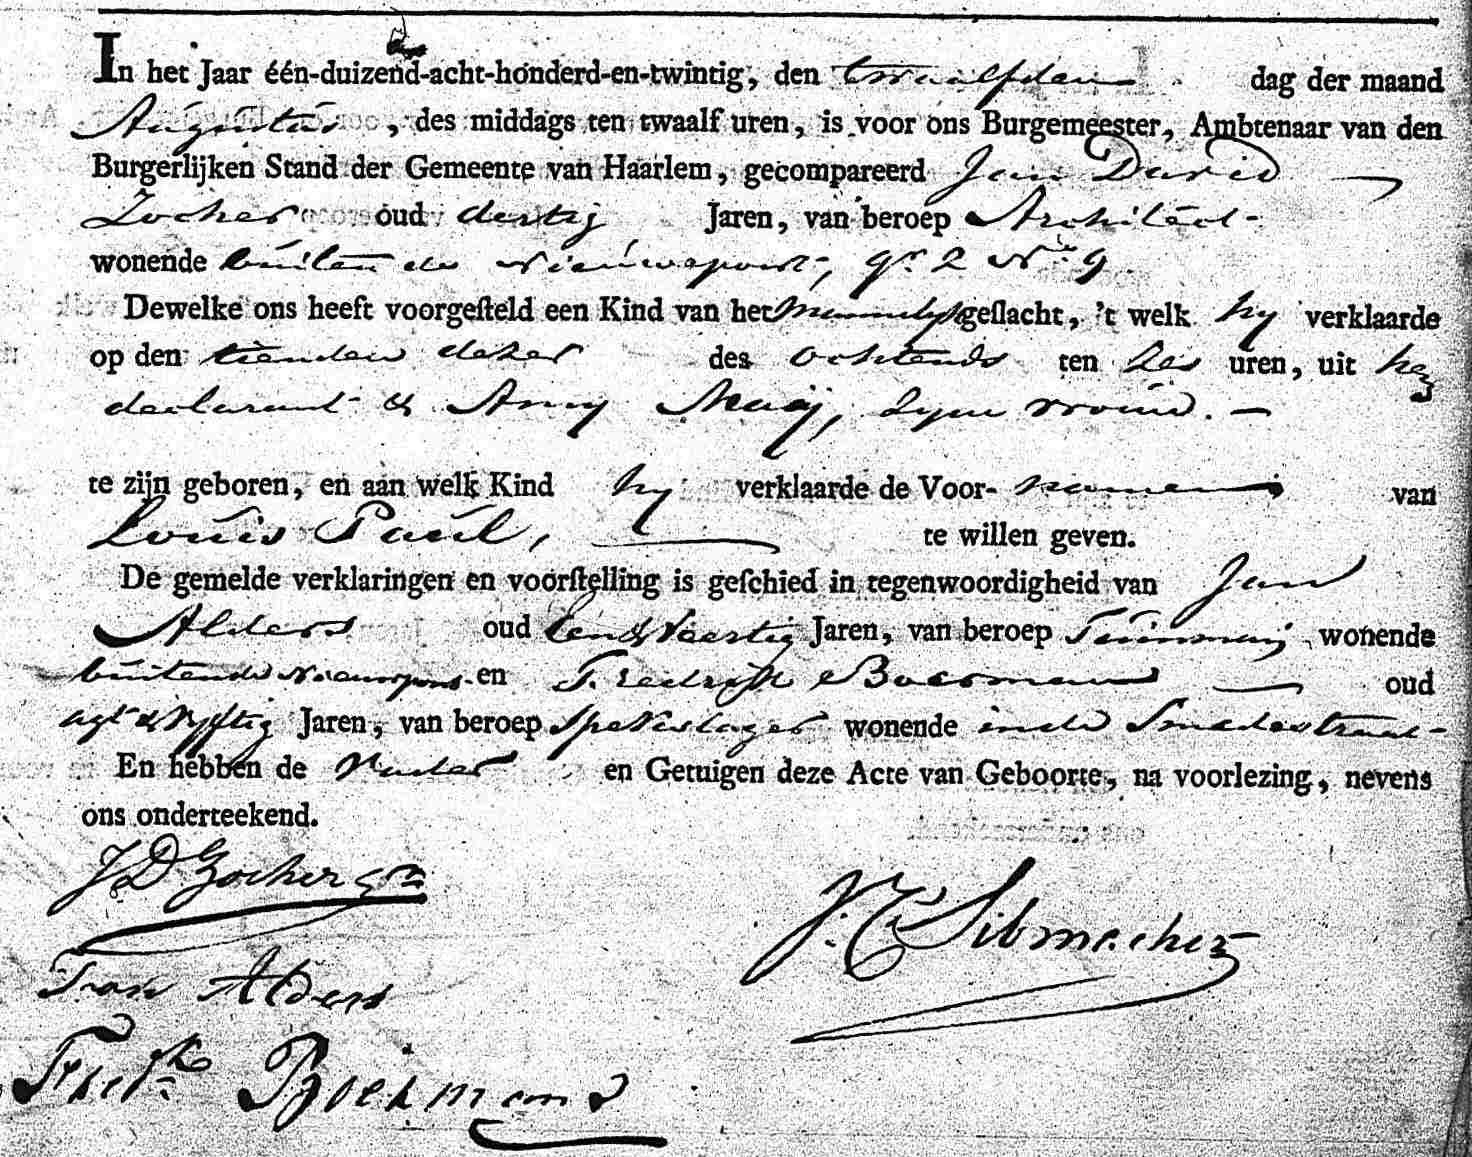 In het Jaar één-duizend-acht-honderd-en-twintig, den twaalfden dag der maand
Augustus, des middags ten twaalf uren, is voor ons Burgemeester, Ambtenaar van den
Burgerlijken Stand der Gemeente van Haarlem, gecompareerd Jan David
Zocher oud dertig Jaren, van beroep Architect
wonende buiten de Nieuwepoort, qr. 2 No. 9
Dewelke ons heeft voorgesteld een Kind van het mannelijk geslacht, 't welk hy verklaarde
op den tienden dezer des ochtends ten zes uren, uit hem
declarant & Anny May, zyne vrouw.
te zijn geboren, en aan welk Kind hy verklaarde de Voor- namen van
Louis Paul, te willen geven.
De gemelde verklaringen en voorstelling is geschied in tegenwoordigheid van Jan
Alders oud een & Veertig Jaren, van beroep Tuinman, wonende
buiten de Nieuwpoort en Fredrik Boerman oud
agt & Vyftig Jaren, van beroep Spekslager wonende in de Smedestraat
En hebben de Vader en Getuigen deze Acte van Geboorte, na voorlezing, nevens
ons onderteekend.
J D Zocher
J. C Sibmacher
Jan Alders
Fredk Boerman